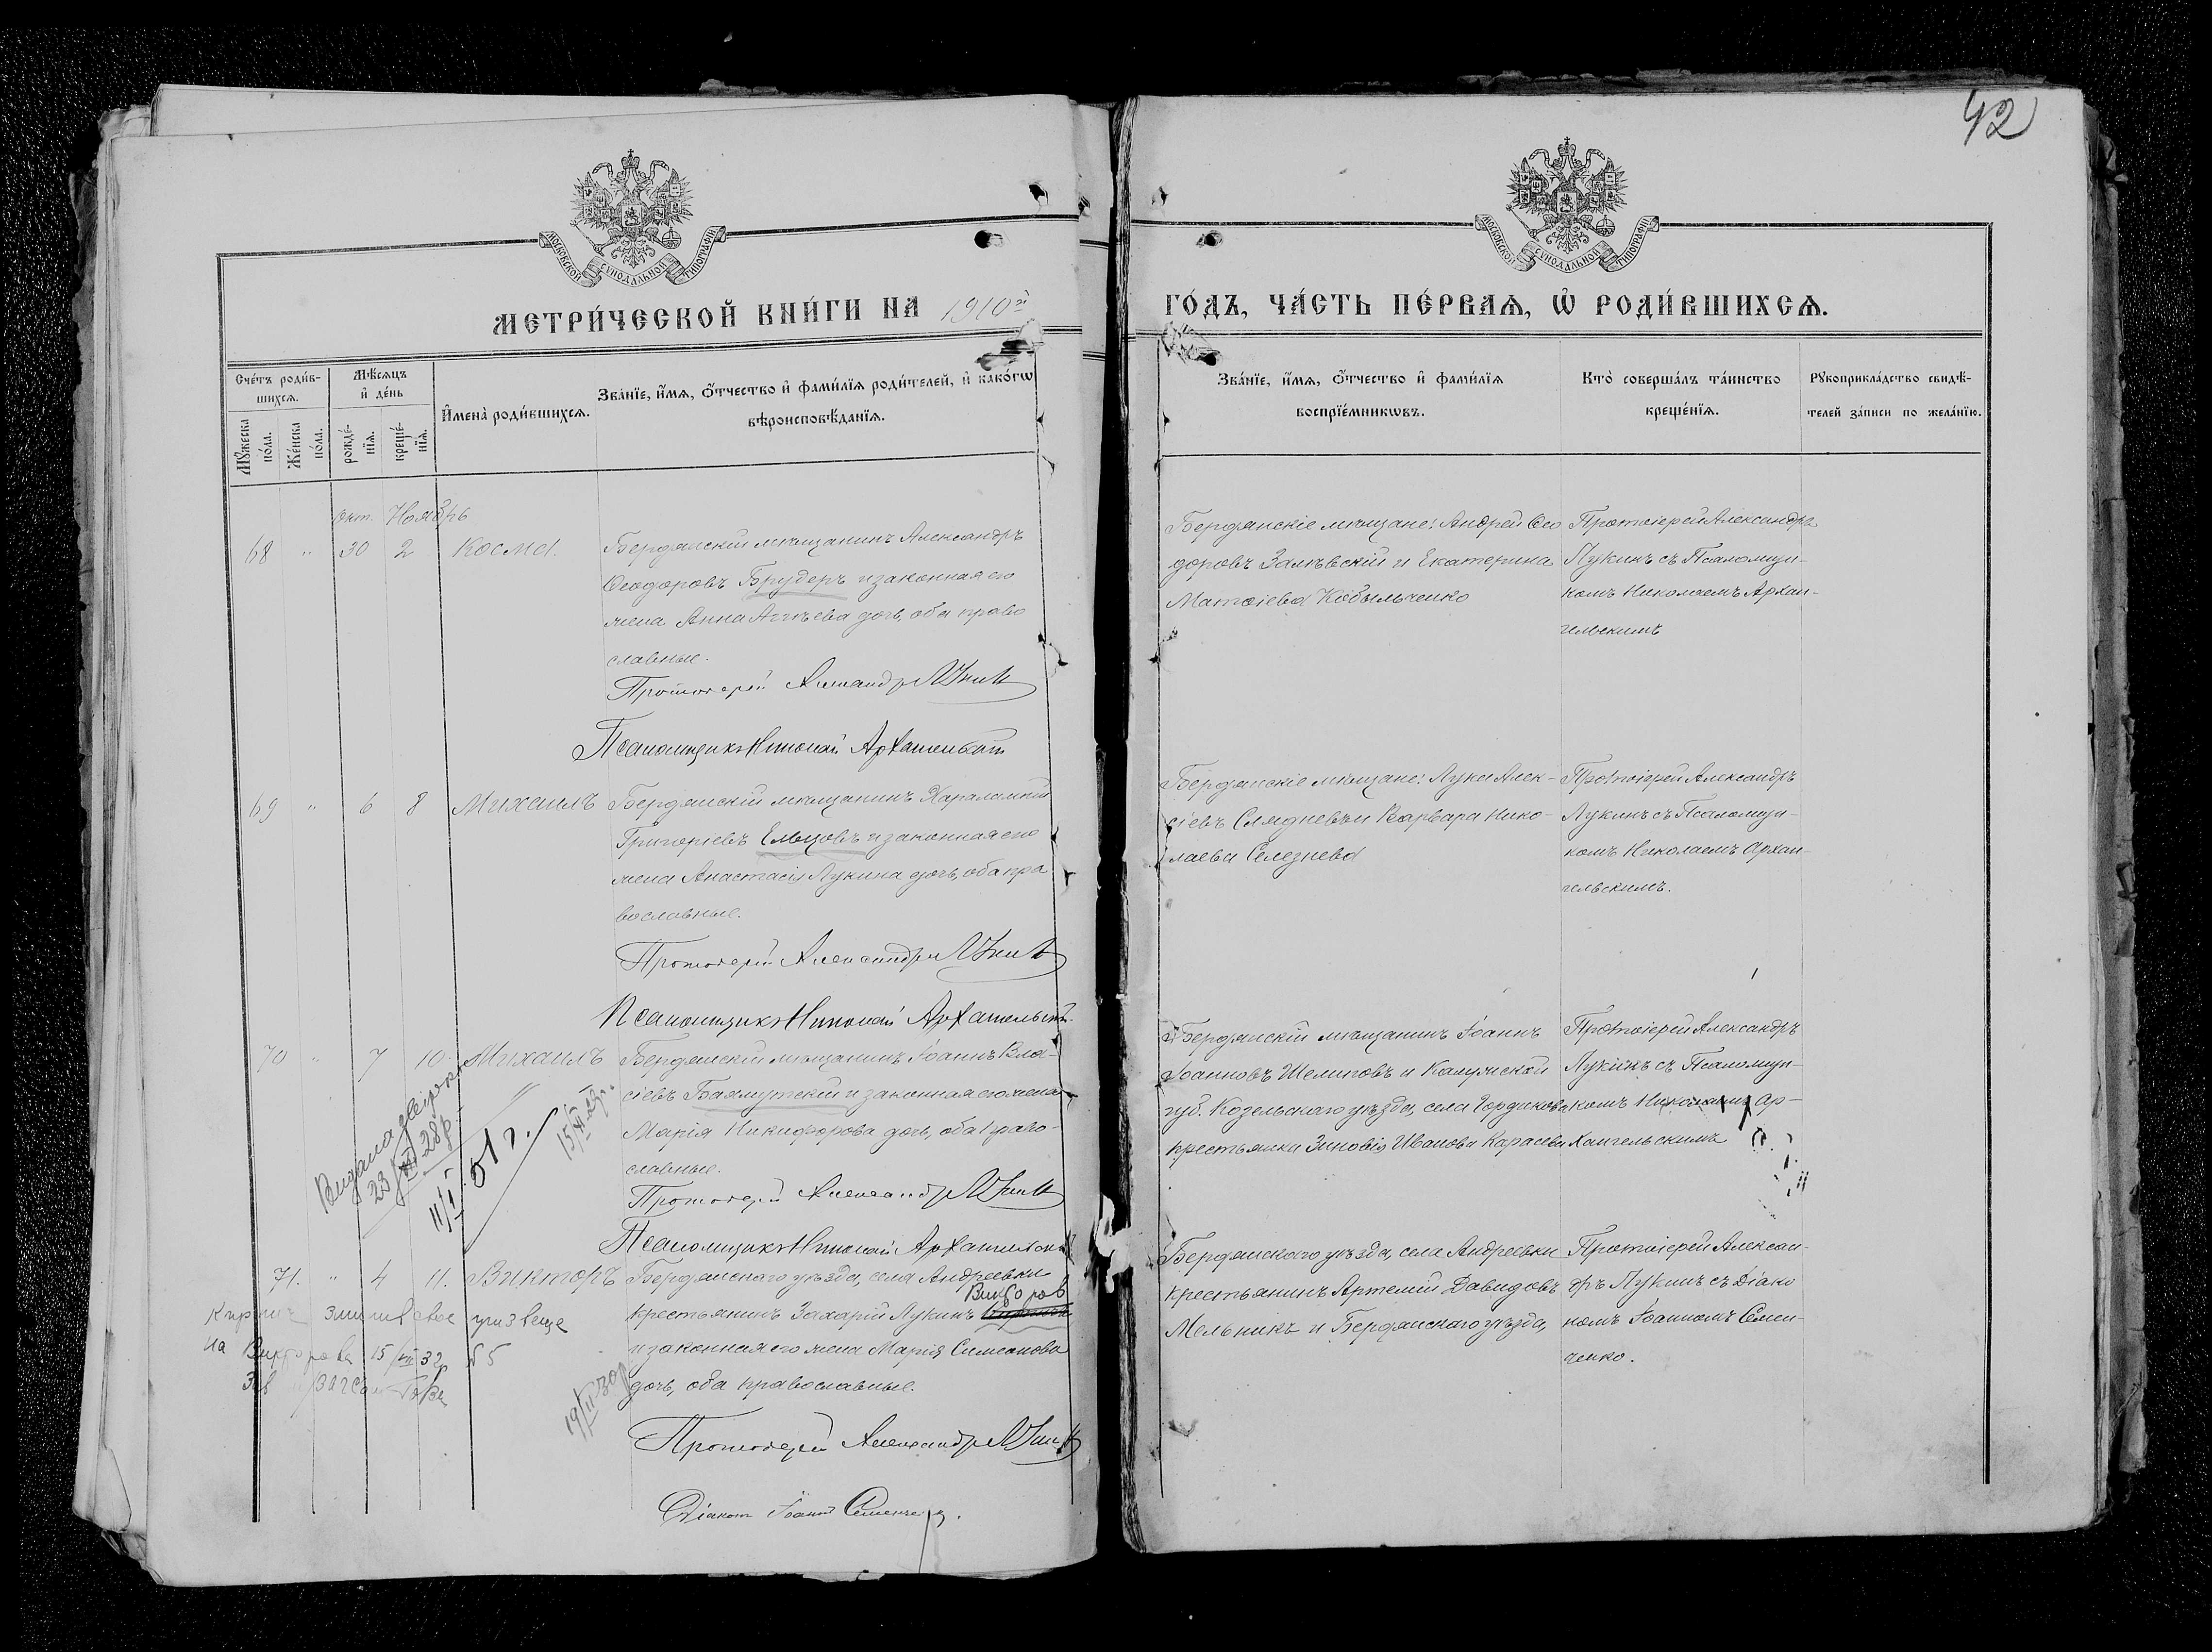 42
МОСКОВСКОЙ СѴНОДАЛЬНОЙ ТИПОГРАФІИ
МОСКОВСКОЙ СѴНОДАЛЬНОЙ ТИПОГРАФІИ
МЕТРИ́ЧЕСКОЙ КНИ́ГИ НА 1910й
ГО́ДЪ, ЧА́СТЬ ПЕ́РВАѦ, Ѡ РОДИ́ВШИХСѦ.
Сче́тъ роди́в-
шихсѧ.
Мꙋ́жеска по́ла.
Же́нска по́ла.
Мѣ́сѧцъ
и де́нь
рожде́-
нїѧ.
креще́-
нїѧ.
И҆мена̀ роди́вшихсѧ.
Зва́нїе, и҆́мѧ, ѻ҆́тчество и҆ фами́лїѧ роди́телей, и҆ како́гѡ
вѣроисповѣ́данїѧ.
Зва́нїе, и҆́мѧ, ѻ҆́тчество и҆ фами́лїѧ
воспрїе́мникѡвъ.
Кто̀ соверша́лъ та́инство
креще́нїѧ.
Рꙋкоприкла́дство свидѣ́-
телей за́писи по жела́нїю.
Окт. Ноябрь
68 " 30 2 Косма.
Бердянскій мѣщанинъ Александръ
Ѳеодоровъ Брудеръ и законная его
жена Анна Аггѣева дочь, оба право
славные.
Протоіерей Александръ Лукинъ
Псаломщикъ Николай Архангельскій
Бердянскіе мѣщане: Андрей Ѳео
доровъ Залѣвскій и Екатерина
Матѳіева Кобыльченко
Протоіерей Александръ
Лукинъ съ Псаломщи-
комъ Николаемъ Архан-
гельскимъ
69 " 6 8 Михаилъ
Бердянскій мѣщанинъ Харалампій
Григоріевъ Ельцовъ и законная его
жена Анастасія Лукина дочь, оба пра
вославные.
Протоіерей Александръ Лукинъ
Псаломщикъ Николай Архангельскій
Бердянскіе мѣщане: Лука Алек-
сіевъ Слядневъ и Варвара Нико-
лаева Селезнева
Протоіерей Александръ
Лукинъ съ Псаломщи-
комъ Николаемъ Архан-
гельскимъ.
70 " 7 10 Михаилъ
Бердянскій мѣщанинъ Іоаннъ Вла-
сіевъ Баямутскій и законная его жена
Марія Никифорова дочь, оба право-
славные.
Протоіерей Александръ Лукинъ
Псаломщикъ Николай Архангельскій
Бердянскій мѣщанинъ Іоаннъ
Іоанновъ Шелиговъ и Калужской
губ. Козельскаго уѣзда, села Гордиково
крестьянка Зиновія Иванова Карасева
Протоіерей Александръ
Лукинъ съ Псаломщи-
комъ Николаемъ Ар-
хангельскимъ
23/XII 28р.
11/I 51 г.
71. " 4 11. Викторъ
Бердянскаго уѣзда, села Андреевки
Викторов
крестьянинъ Захарій Лукинъ
и законная его жена Марія Симеонова
дочь, оба православные.
Протоіерей Александръ Лукинъ
Діаконъ Іоаннъ Семенченко.
змінив своє прізвеще
на Вікторова 15/VII 32р №5
19/II 30р
Бердянскаго уѣзда, села Андреевки
крестьянинъ Артемій Давидовъ
Мельникъ и Бердянскаго уѣзда,
Протоіерей Алексан-
дръ Лукинъ съ Діако
номъ Іоанномъ Семен-
ченко.